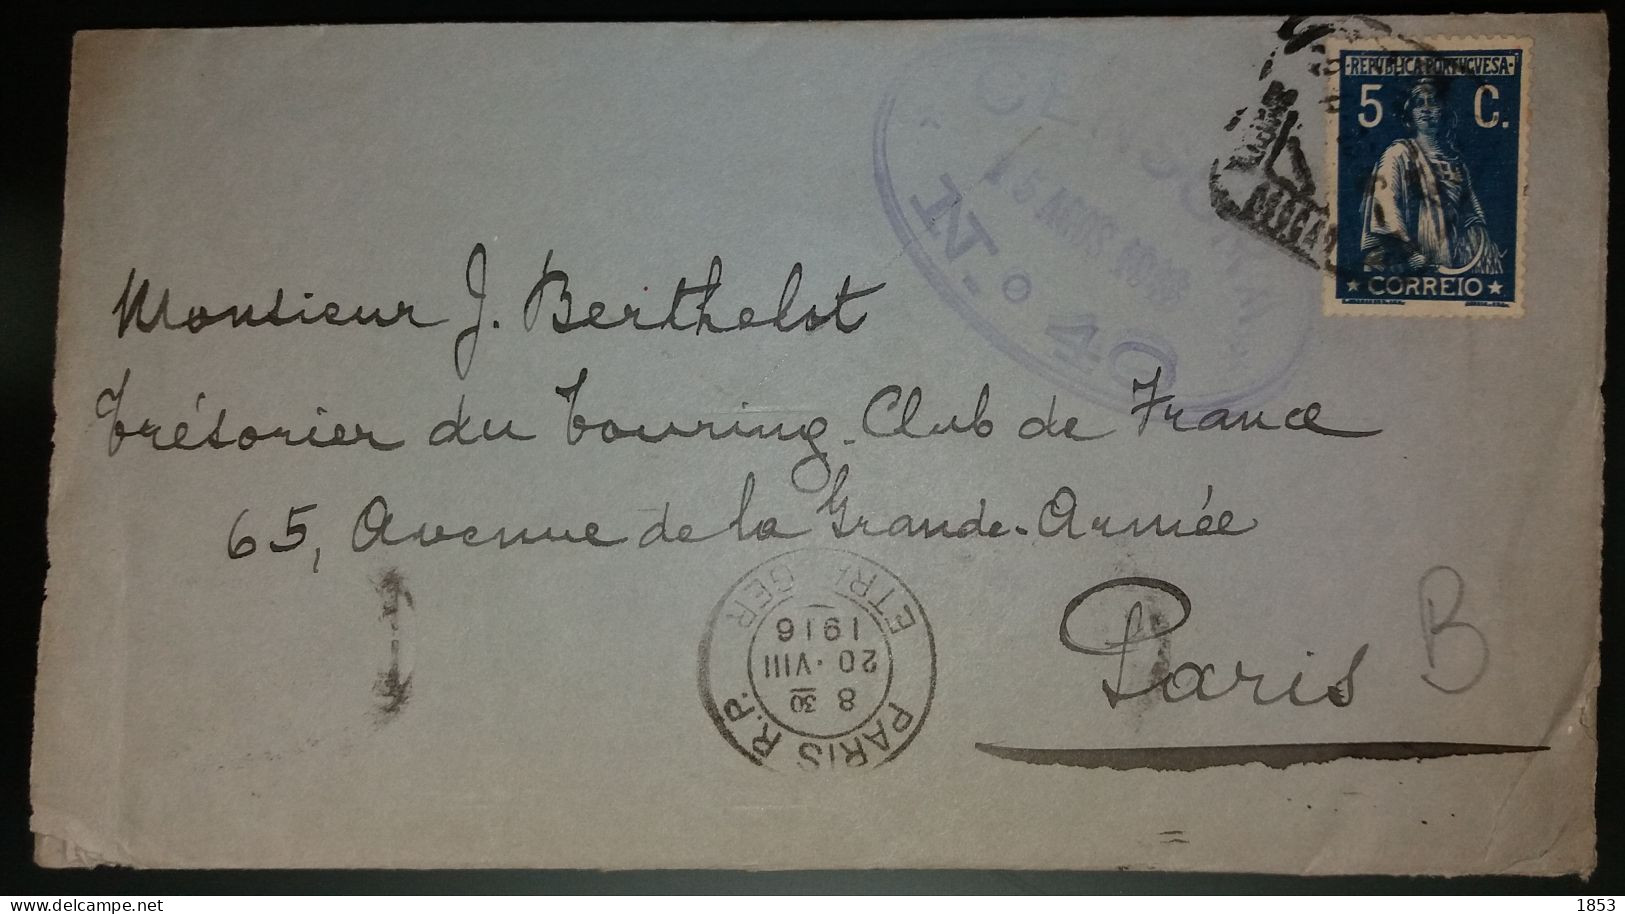 REPVBLICA PORTVGVESA
5 C.
CORREIO
CENSURA
15 AGOS 1916
N.º 40
Monsieur J. Berthelot
Trésorier du Touring-Club de France
65, Avenue de la Grande-Armée
Paris
B
PARIS R.P.
8 30
20 · VIII
1916
ETRANGER
delcampe.net
1853